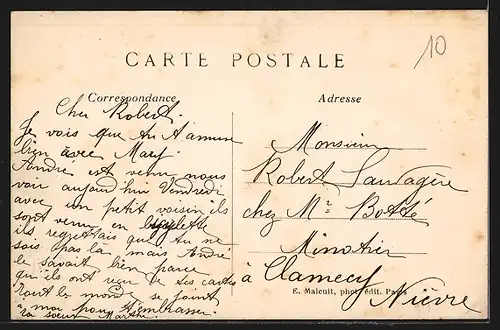 10
CARTE POSTALE
Correspondance
Adresse
Cher Robert.
Je vois que tu t'amuse
bien avec Mary.
André est venu nous
voir aujourd'hui Vendredi
avec un petit voisin ils
sont venu en bicyclette
ils regrettais que tu ne
sois pas là mais André
le savait bien parce
qu'ils ont reçu de ses cartes
tout le monde se joint
à moi pour t'embrasser.
ta soeur Marthe
Monsieur
Robert Sauvagère
chez Mr Botté
Minotier
à Clamecy
Nièvre
E. Maleuit, phot. édit. Paris